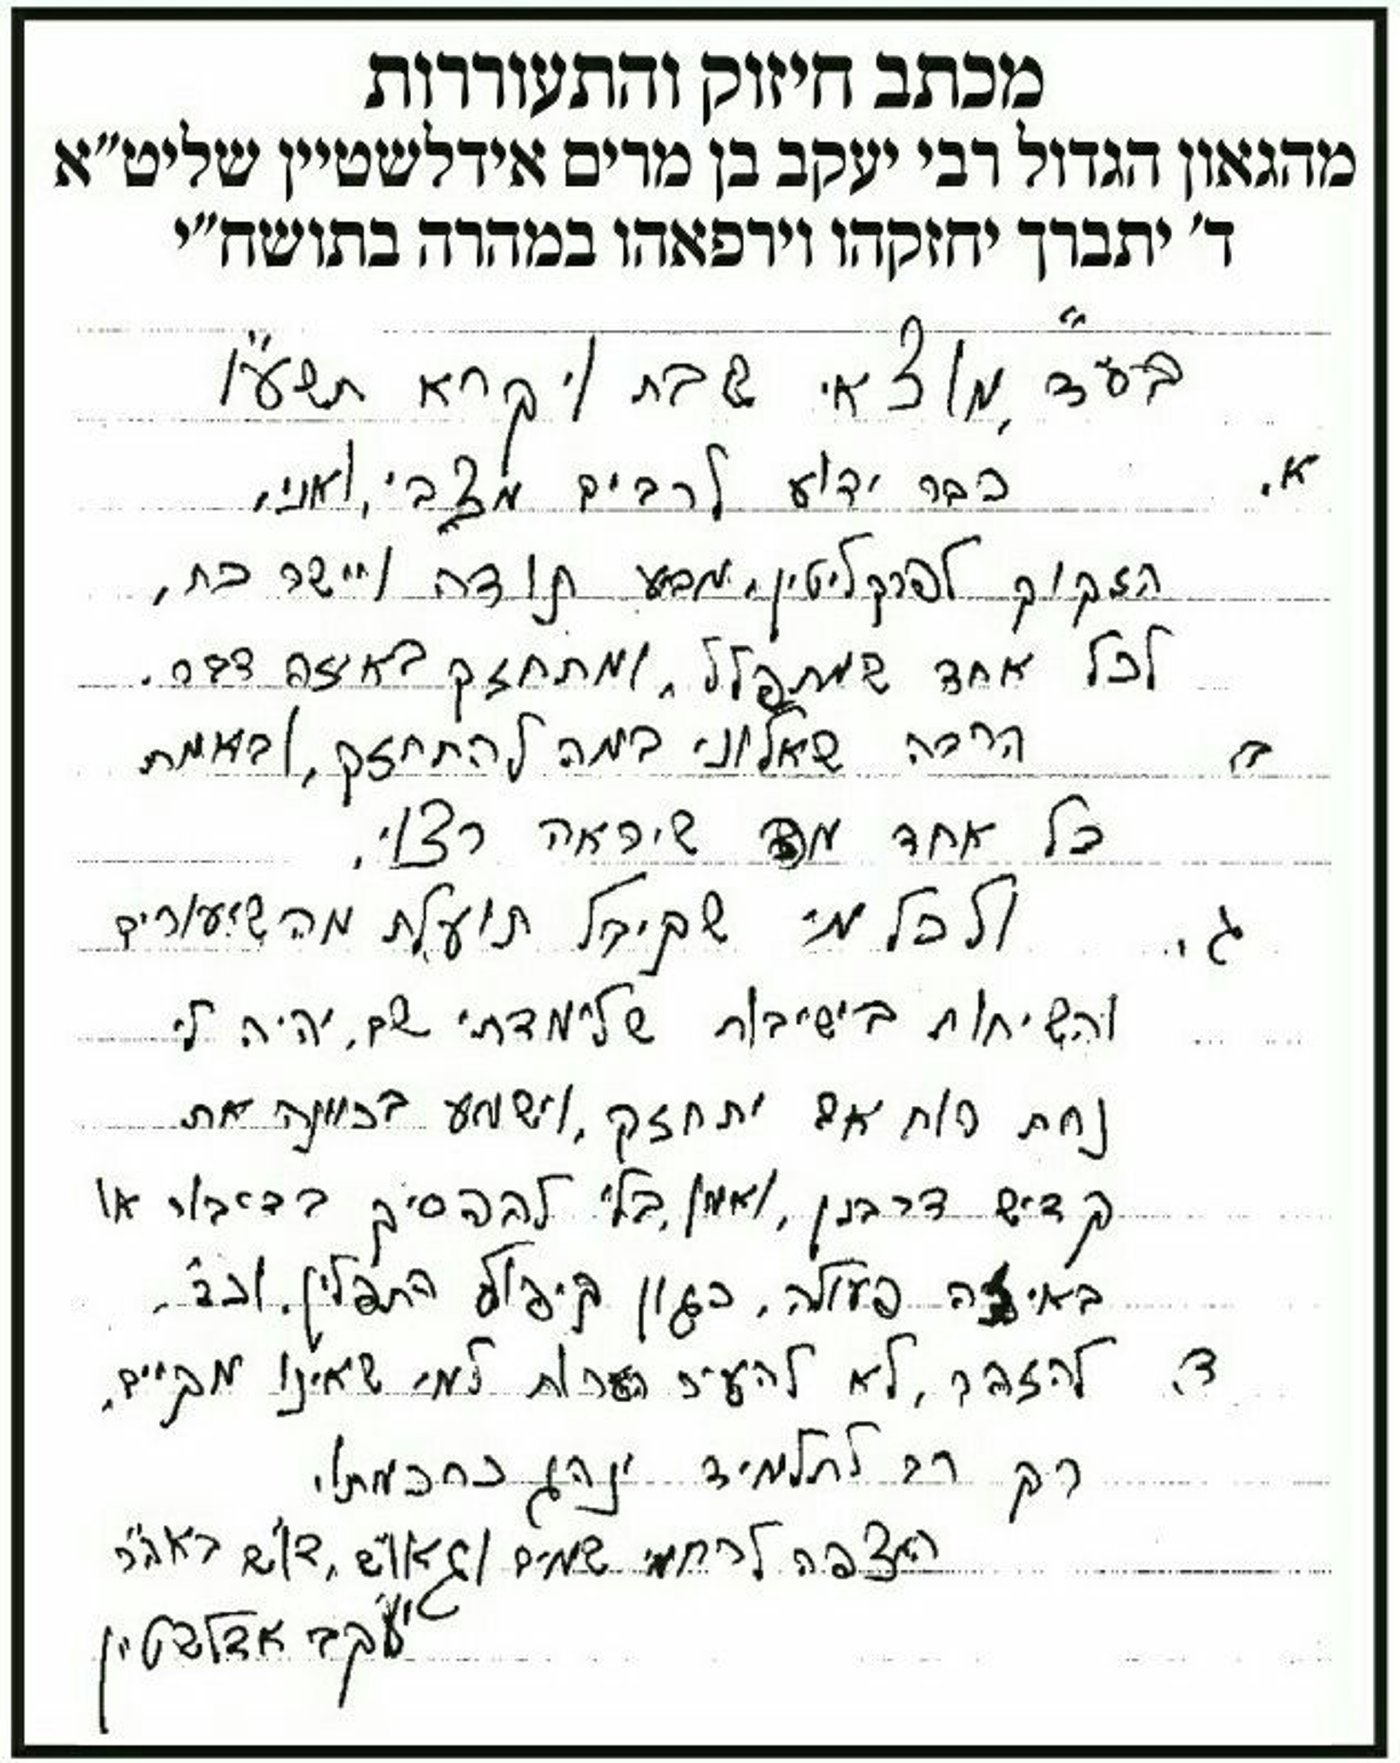 מכתב חיזוק והתעוררות
מהגאון הגדול רבי יעקב בן מרים אידלשטיין שליט״א
ד׳ יתברך יחזקהו וירפאהו במהרה בתושח״י
בעד, מוצאי שבת ויקרא תשע״ו
א. כבר ידוע לרבים מצבי, ואני,
הזקוק לפרקליטין, מביע תודה ויישר כח,
לכל אחד שמתפלל, ומתחזק באיזה דבר.
ב הרבה שאלוני במה להתחזק, ובאמת
כל אחד מה שיראה רצוי,
ג. ולכל מי שקיבל תועלת מהשיעורים
והשיחות בישיבות שלימדתי שם, יהיה לי
נחת רוח אם יתחזק, וישמע בכוונה את
קדיש דרבנן, ואמן, בלי להפסיק בדיבור או
באיזה פעולה, כגון קיפול התפלין, וכד׳,
ד. להזהר, לא להעיר הערות למי שאינו מקיים,
רק רב לתלמיד ינהג כחכמתו,
המצפה לרחמי שמים וגאו״ש, דו״ש באה״ר
יעקב אדלשטיין